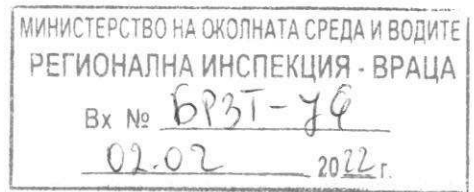 МИНИСТЕРСТВО НА ОКОЛНАТА СРЕДА И ВОДИТЕ
РЕГИОНАЛНА ИНСПЕКЦИЯ - ВРАЦА
Вх № БРЗТ-
02.02 2022 г.